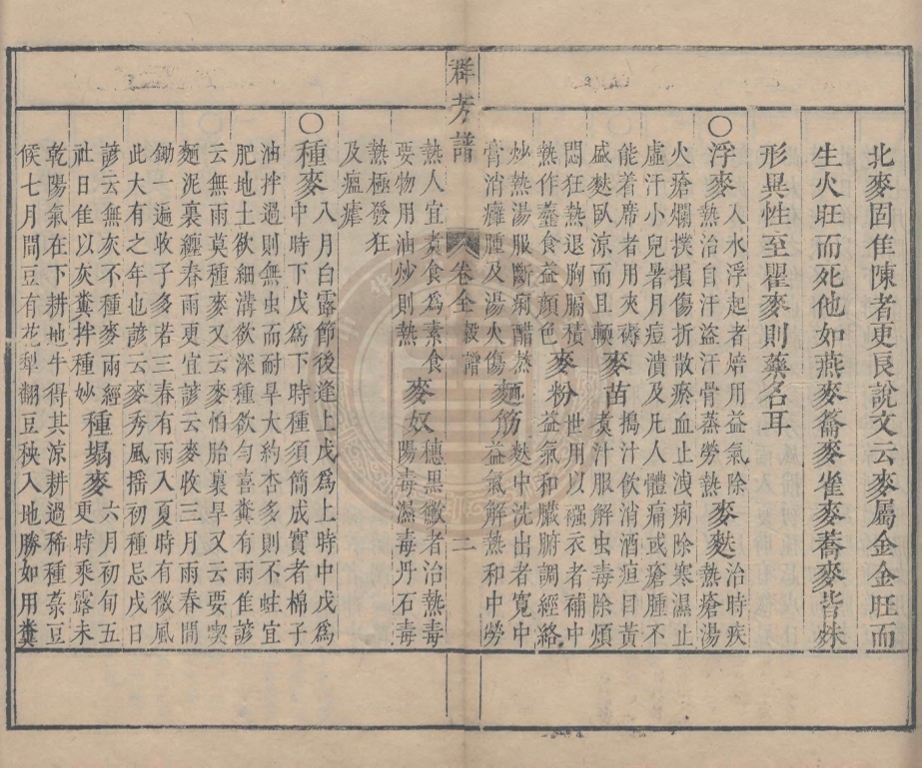 北麥固佳陳者更良說文云麥屬金金旺而
生火旺而死他如燕麥䕬麥雀麥蕎麥皆殊
形異性至瞿麥則藥名耳
○浮麥入水浮起者焙用益氣除
熱治自汗盜汗骨蒸勞熱 麥麩治時疾
熱瘡湯
火瘡爛撲損傷折散瘀血止洩痢除寒濕止
虛汗小兒暑月痘潰及凡人體痛或瘡腫不
能着席者用夾褥
盛麩臥凉而且頓 麥苗搗汁飲消酒疸目黃
煮汁服解虫毒除煩
悶狂熱退胸膈積
熱作虀食益顏色 麥粉世用以糨衣者補中
益氣和臟腑調經絡
炒熱湯服斷痢醋蒸
膏消癰腫及湯火傷 麵筋麩中洗出者寬中
益氣解熱和中勞
群芳譜
卷全 穀譜
二
熱人宜煮食爲素食
要物用油炒則熱 麥奴穗黑黴者治熱毒
陽毒濕毒丹石毒
熱極發狂
及瘟瘧
○種麥八月白露節後逢上戊爲上時中戊爲
中時下戊爲下時種須簡成實者棉子
油拌過則無虫而耐旱大約杏多則不蛀宜
肥地土欲細溝欲深種欲勻喜糞有雨佳諺
云無雨莫種麥又云麥怕胎裏旱又云要喫
麵泥裏纏春雨更宜諺云麥收三月雨春間
鋤一遍收子多若三春有雨入夏時有微風
此大有之年也諺云麥秀風搖初種忌戊日
諺云無灰不種麥兩經
社日佳以灰糞拌種妙 種塌麥六月初旬五
更時乘露未
乾陽氣在下耕地牛得其凉耕過稀種菉豆
候七月間豆有花犂翻豆秧入地勝如用糞